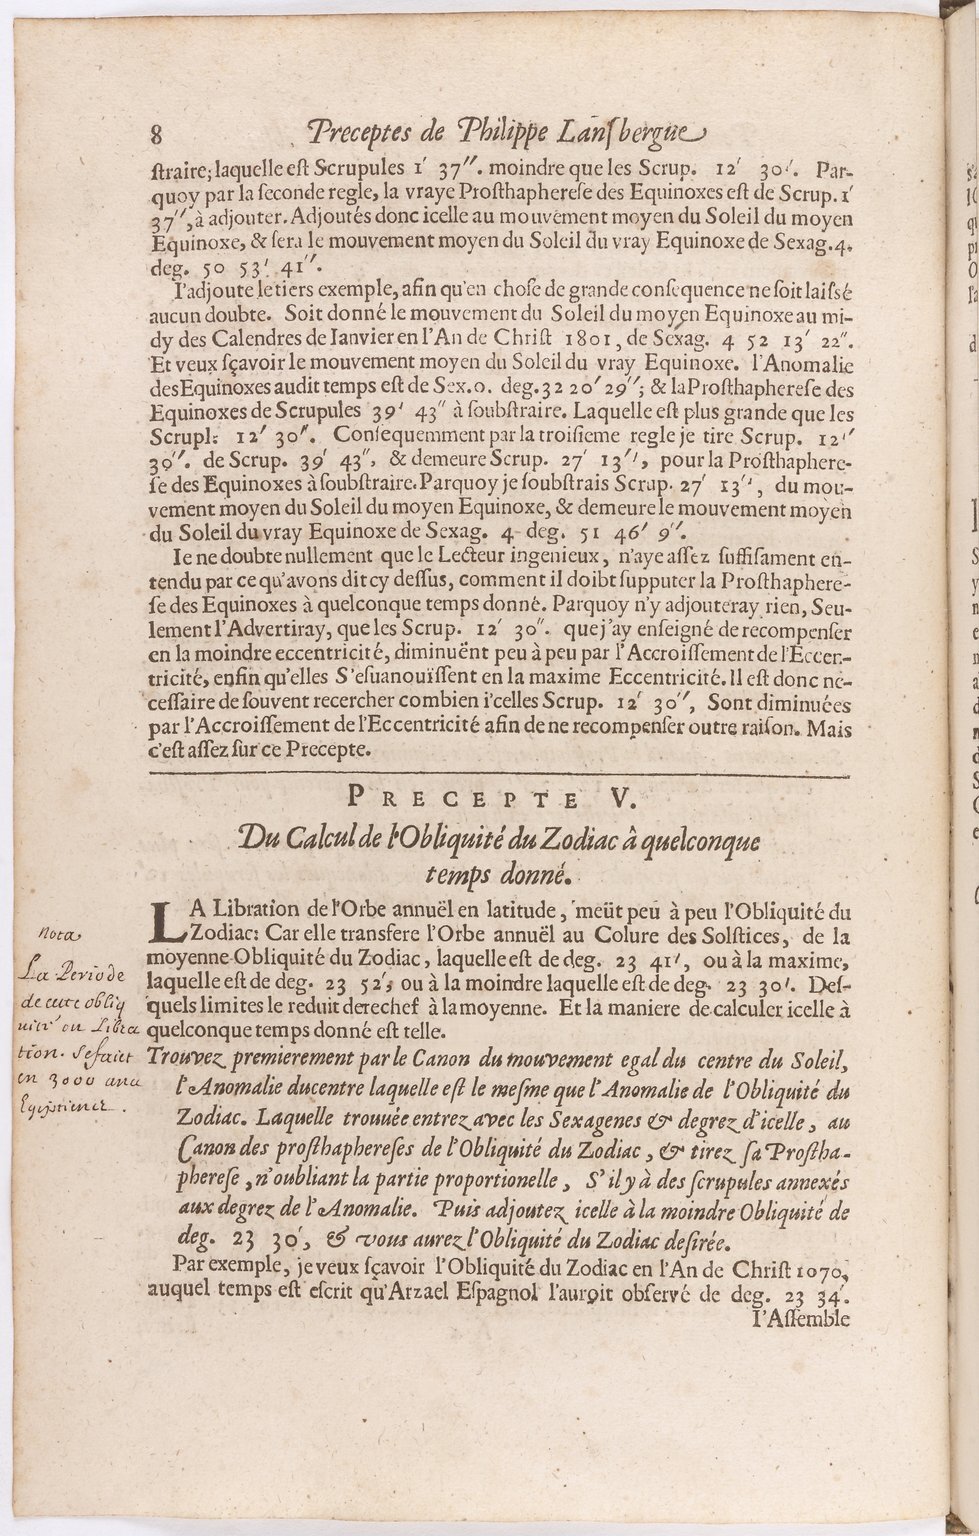 8 Preceptes de Philippe Lansbergue
ſtraire; laquelle eſt Scrupules 1′ 37″. moindre que les Scrup. 12′ 30′. Par-
quoy par la ſeconde regle, la vraye Proſthaphereſe des Equinoxes eſt de Scrup. 1′
37″, à adjouter. Adjoutés donc icelle au mouvement moyen du Soleil du moyen
Equinoxe, & ſera le mouvement moyen du Soleil du vray Equinoxe de Sexag. 4.
deg. 50 53′ 41″.
I'adjoute le tiers exemple, afin qu'en choſe de grande conſequence ne ſoit laiſsé
aucun doubte. Soit donné le mouvement du Soleil du moyen Equinoxe au mi-
dy des Calendres de Ianvier en l'An de Chriſt 1801, de Sexag. 4 52 13′ 22″.
Et veux ſçavoir le mouvement moyen du Soleil du vray Equinoxe. l'Anomalie
des Equinoxes audit temps eſt de Sex. 0. deg. 32 20′ 29″; & la Proſthaphereſe des
Equinoxes de Scrupules 39′ 43″ à ſoubſtraire. Laquelle eſt plus grande que les
Scrupl: 12′ 30″. Conſequemment par la troiſieme regle je tire Scrup. 12′
30″. de Scrup. 39′ 43″, & demeure Scrup. 27′ 13″, pour la Proſthaphere-
ſe des Equinoxes à ſoubſtraire. Parquoy je ſoubſtrais Scrup. 27′ 13″, du mou-
vement moyen du Soleil du moyen Equinoxe, & demeure le mouvement moyen
du Soleil du vray Equinoxe de Sexag. 4 deg. 51 46′ 9″.
Ie ne doubte nullement que le Lecteur ingenieux, n'aye aſſez ſuffiſament en-
tendu par ce qu'avons dit cy deſſus, comment il doibt ſupputer la Proſthaphere-
ſe des Equinoxes à quelconque temps donné. Parquoy n'y adjouteray rien, Seu-
lement l'Advertiray, que les Scrup. 12′ 30″. que j'ay enſeigné de recompenſer
en la moindre eccentricité, diminuënt peu à peu par l'Accroiſſement de l'Eccen-
tricité, enfin qu'elles S'eſuanouïſſent en la maxime Eccentricité. Il eſt donc ne-
ceſſaire de ſouvent recercher combien i'celles Scrup. 12′ 30″, Sont diminuées
par l'Accroiſſement de l'Eccentricité afin de ne recompenſer outre raiſon. Mais
c'eſt aſſez ſur ce Precepte.
PRECEPTE V.
Du Calcul de l'Obliquité du Zodiac â quelconque
temps donné.
LA Libration de l'Orbe annuël en latitude, meüt peu à peu l'Obliquité du
Zodiac: Car elle transfere l'Orbe annuël au Colure des Solſtices, de la
moyenne Obliquité du Zodiac, laquelle eſt de deg. 23 41′, ou à la maxime,
laquelle eſt de deg. 23 52′; ou à la moindre laquelle eſt de deg. 23 30′. Deſ-
quels limites le reduit derechef à la moyenne. Et la maniere de calculer icelle à
quelconque temps donné eſt telle.
Trouvez premierement par le Canon du mouvement egal du centre du Soleil,
l'Anomalie du centre laquelle eſt le meſme que l'Anomalie de l'Obliquité du
Zodiac. Laquelle trouuée entrez avec les Sexagenes & degrez d'icelle, au
Canon des proſthaphereſes de l'Obliquité du Zodiac, & tirez ſa Proſtha-
phereſe, n'oubliant la partie proportionelle, S'il y à des ſcrupules annexés
aux degrez de l'Anomalie. Puis adjoutez icelle à la moindre Obliquité de
deg. 23 30′, & vous aurez l'Obliquité du Zodiac deſirée.
Par exemple, je veux ſçavoir l'Obliquité du Zodiac en l'An de Chriſt 1070,
auquel temps eſt eſcrit qu'Arzael Eſpagnol l'auroit obſervé de deg. 23 34′.
I'Aſſemble
Nota
La Periode
de cette obliq
uité ou Libra
tion. Sefaict
en 3000 ans
Egiptiens.